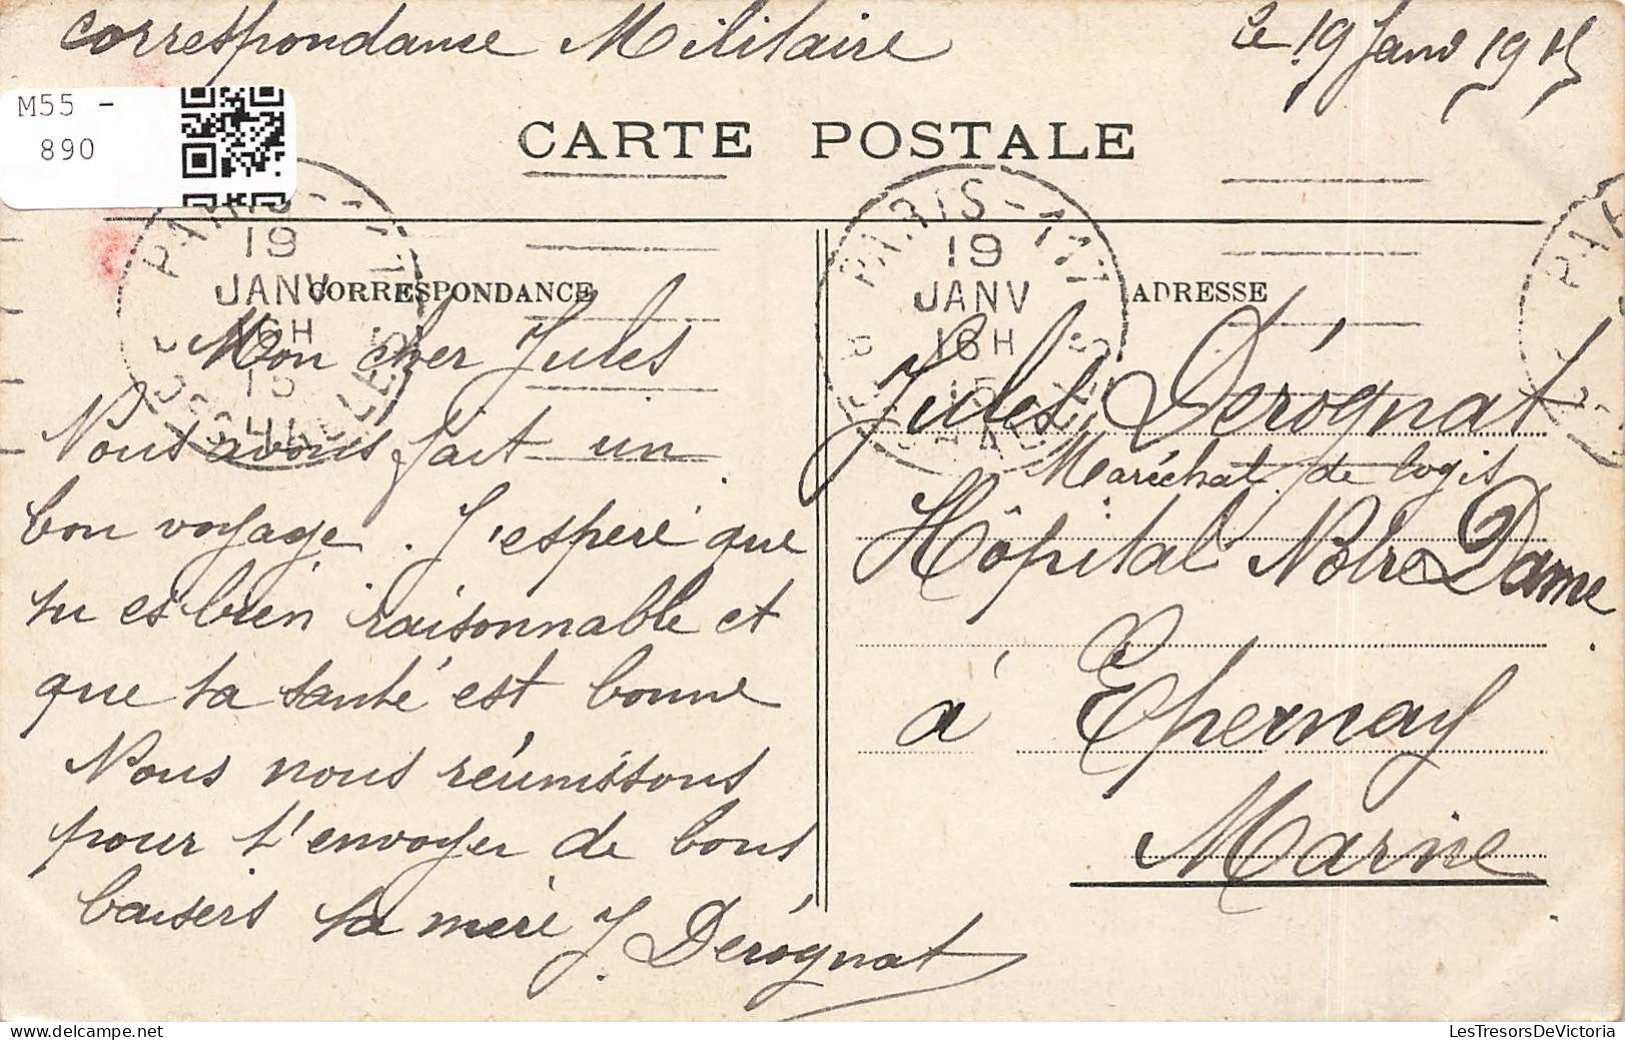 Correspondance Militaire
Le 19 Janv 1915
M55 -
890
CARTE POSTALE
PARIS
19
JANV
16H
15
PARIS
19
JANV
16H
15
CORRESPONDANCE
Mon cher Jules
Nous avons fait un
bon voyage. J'espère que
tu es bien raisonnable et
que ta santé est bonne
Nous nous réunissons
pour t'envoyer de bons
baisers ta mère J. Derógnat
ADRESSE
Jules Derógnat
Maréchal de logis
Hôpital Notre Dame
à Epernay
Marine
LesTresorsDeVictoria